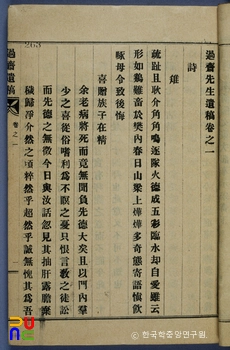 過齋先生遺稿卷之一
詩
雉
疏趾且耿介角角鳴逐隊火德成五彩臨水却自愛雖云
形如鷄難畜於樊內春日山梁上燁燁多奇態寄語愼飮
啄毋令致後悔
喜贈族子在精
余老病將死而竟無聞負先德大矣且以門內羣
少之喜從俗嗜利爲不瞑之憂只恨言敎之徒訟
而先德之無徵今日與汝話忽見其抽肝露膽棄
穢歸淨介然之頃粹然乎超然乎誠無愧其爲吾
過齋遺稿
卷之一
한국학중앙연구원